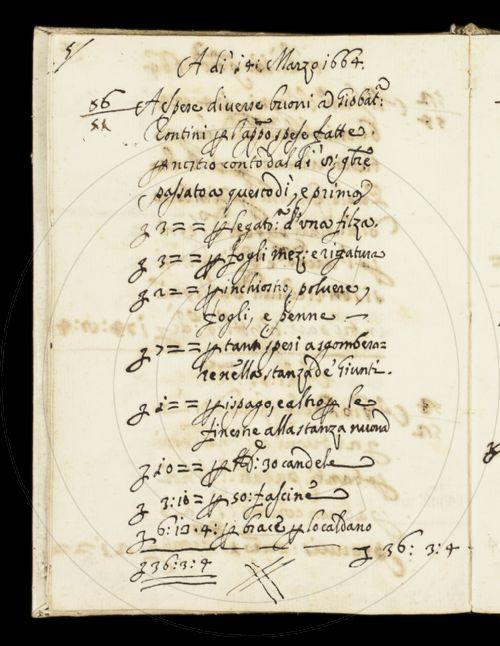 5
A dì 14: Marzo 1664.
86 A spese diverse buoni a Giobatt:
Rontini p l'app.o spese fatte
p nostro conto dal dì 8bre
passato a questo dì, e prima
3 = = p legato: d'una filza.
3 = = p fogli mez: e rigatura
2 = = p inchiostro, polvere,
fogli, e penne —
7 = = p tanti spesi a sgombera=
re nella stanza de Giunti.
1 = = p ispago, e altro p le
finestre alla stanza nuova
10 = = p 30 candele
3:10 = p 50: fascine
6:13.4: p brace p lo caldano
36: 3: 4
36:3:4